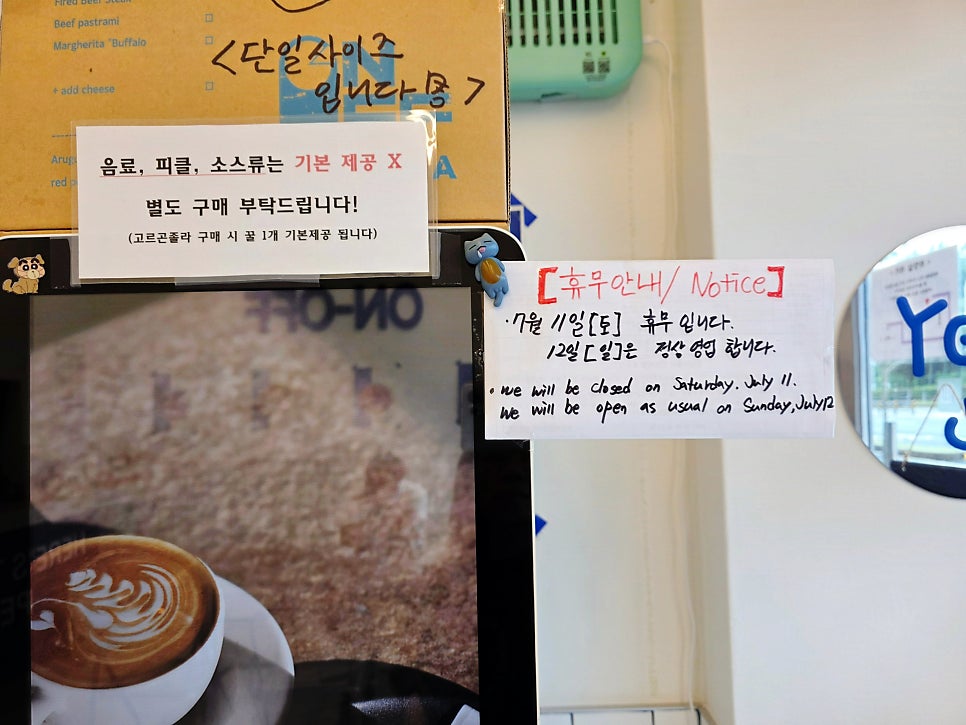 Beef pastrami
Margherita "Buffalo
+ add cheese
<단일사이즈
입니다용>
음료, 피클, 소스류는 기본 제공 X
별도 구매 부탁드립니다!
(고르곤졸라 구매 시 꿀 1개 기본제공 됩니다)
[휴무안내/ Notice]
·7월 11일[토] 휴무입니다.
12일[일]은 정상영업 합니다.
• We will be closed on Saturday. July 11.
We will be open as usual on Sunday, July 12
ON-OFF